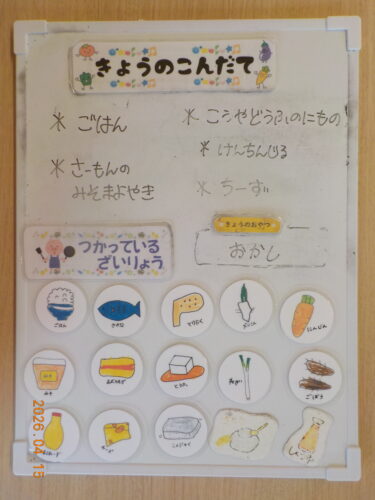 きょうのこんだて
* ごはん
* こうやどうふのにもの
* けんちんじる
* さーもんの
みそまよやき
* ちーず
つかっている
ざいりょう
きょうのおやつ
おかし
ごはん
さかな
とりにく
だいこん
にんじん
みそ
あぶらあげ
とうふ
ねぎ
ごぼう
こんにゃく
2026.04.15